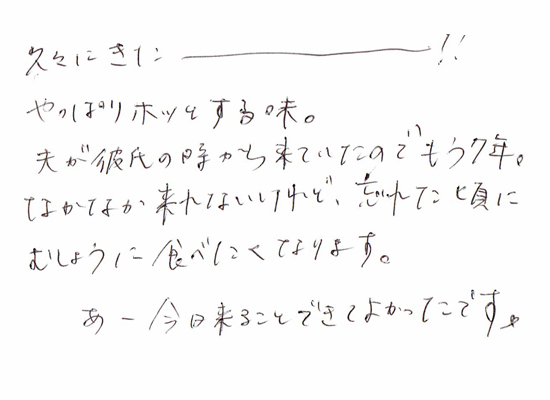 久々にきた――――!!
やっぱりホッとする味。
夫が彼氏の時から来ていたのでもう7年。
なかなか来れてないけれど、忘れてた頃に
むしょうに食べたくなります。
あー今日来ることできてよかったです。